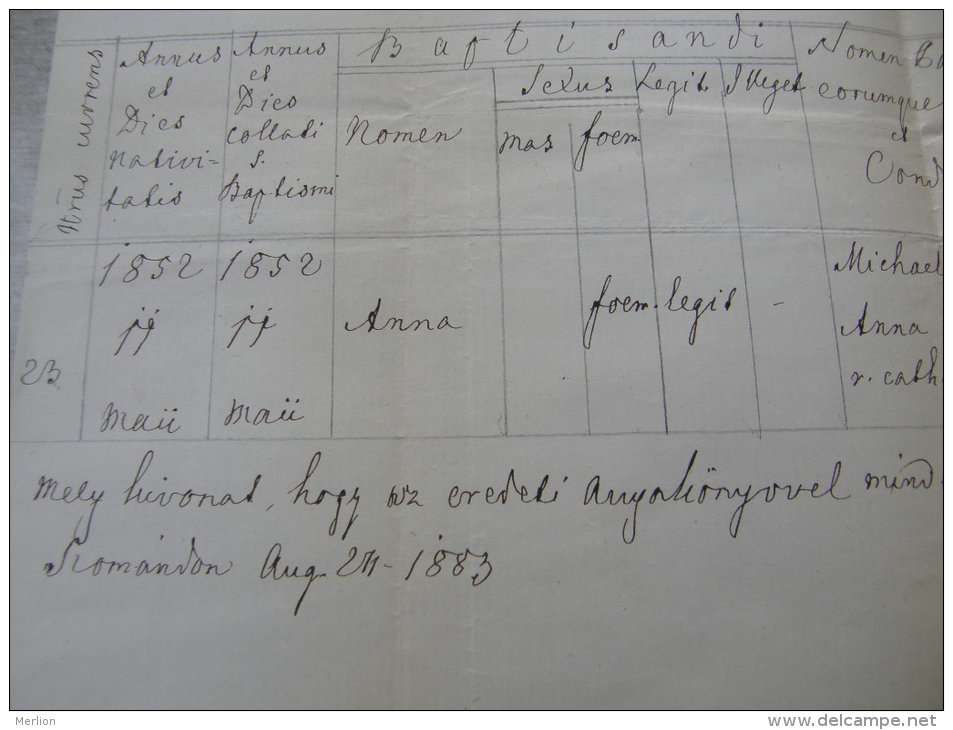 Nrus currens
Annus et Dies nativi-
tatis
Annus et Dies collati
s. Baptismi
Baptisandi
Nomen
Sexus
mas foem
Legit. Illeget
Nomen
eorumque
et
Cond
23
1852
Maii
1852
Maii
Anna
foem. legit -
Michael
Anna
r. cath.
Mely kivonat, hogy az eredeti Anyakönyvvel mind-
Szomándon Aug. 1883
Merlion
www.delcampe.net